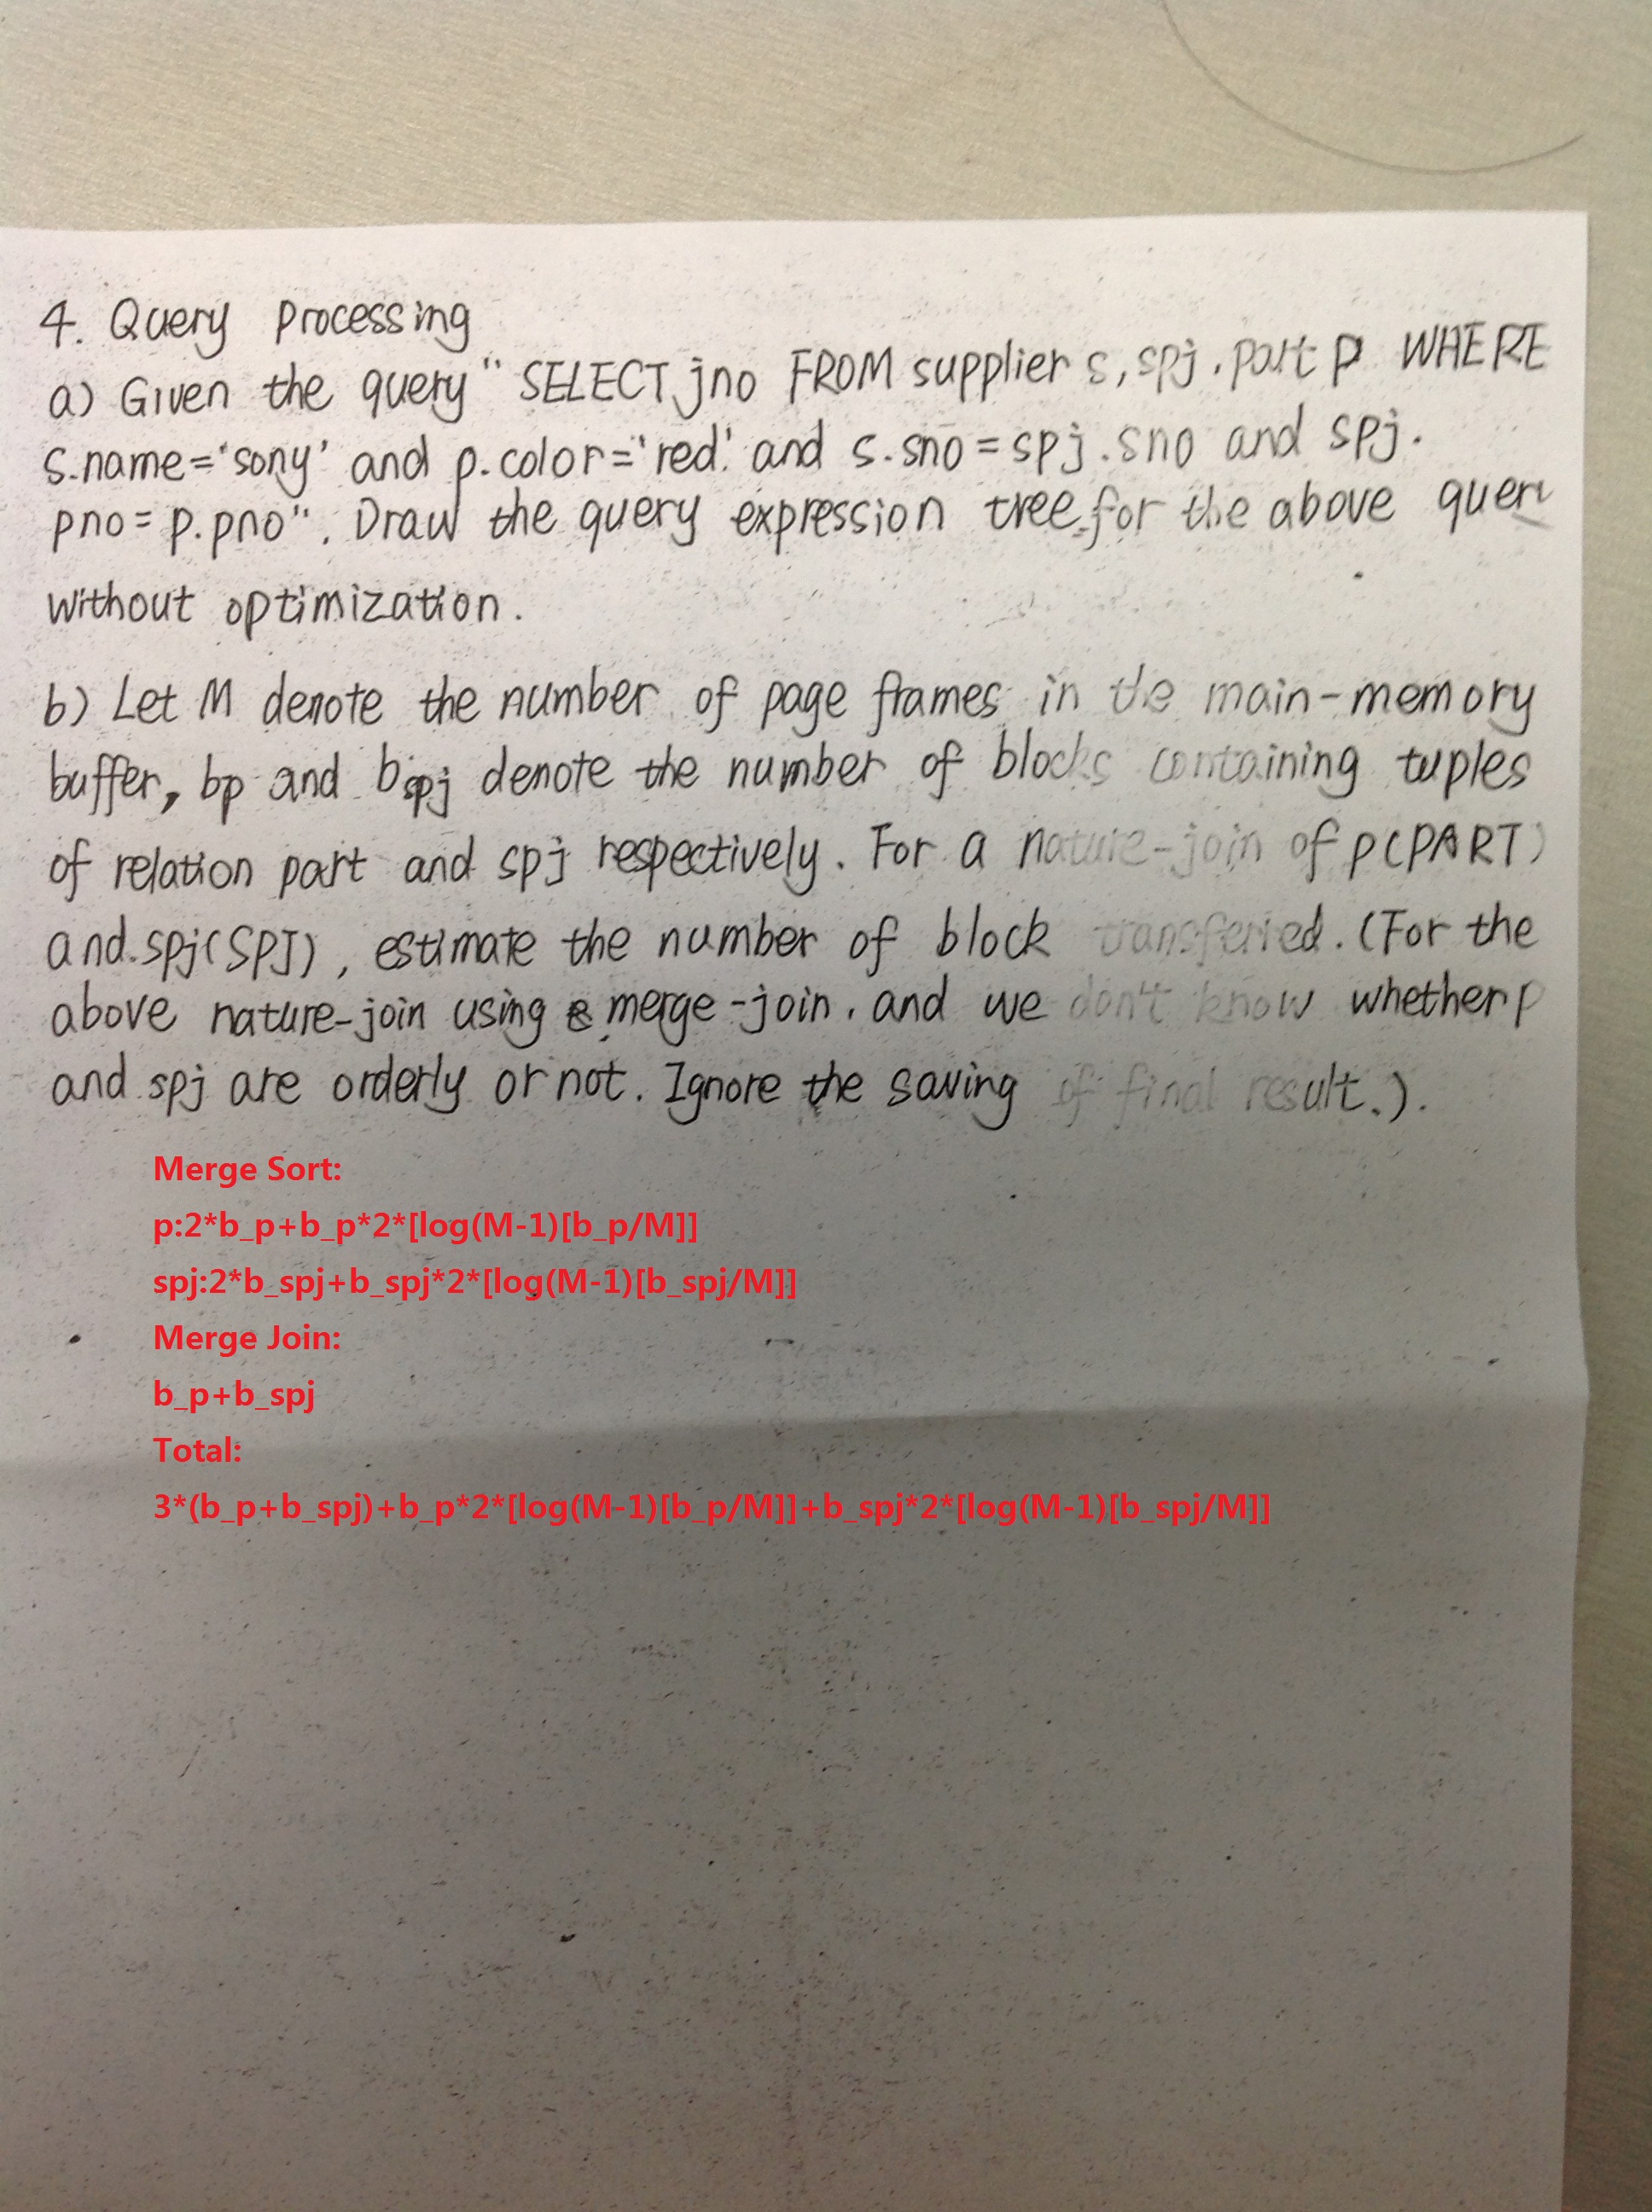 4. Query processing
a) Given the query "SELECT jno FROM supplier s, spj, part p WHERE
s.name='sony' and p.color='red' and s.sno=spj.sno and spj.
pno=p.pno". Draw the query expression tree for the above query
without optimization.
b) Let M denote the number of page frames in the main-memory
buffer, bp and bspj denote the number of blocks containing tuples
of relation part and spj respectively. For a nature-join of p(PART)
and spj(SPJ), estimate the number of block transferred. (For the
above nature-join using merge-join, and we don't know whether p
and spj are orderly or not. Ignore the saving of final result.).
Merge Sort:
p:2*b_p+b_p*2*[log(M-1)[b_p/M]]
spj:2*b_spj+b_spj*2*[log(M-1)[b_spj/M]]
Merge Join:
b_p+b_spj
Total:
3*(b_p+b_spj)+b_p*2*[log(M-1)[b_p/M]]+b_spj*2*[log(M-1)[b_spj/M]]